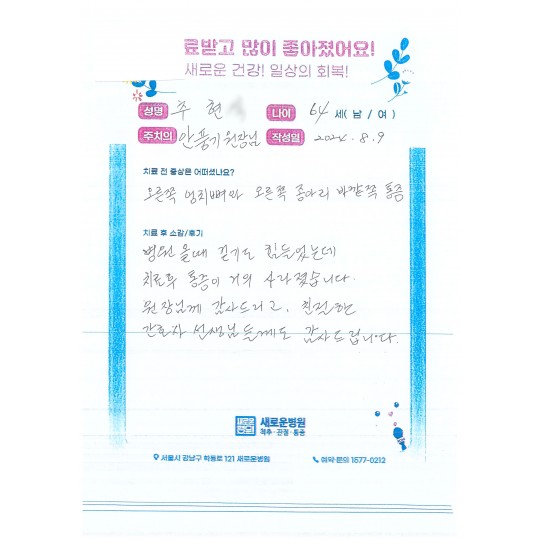 료받고 많이 좋아졌어요!
새로운 건강! 일상의 회복!
성명 주 현 나이 64 세( 남 / 여 )
주치의 안풍기 원장님 작성일 2024. 8. 9
치료 전 증상은 어떠셨나요?
오른쪽 엉치뼈와 오른쪽 종아리 바깥쪽 통증
치료 후 소감/후기
병원 올때 걷기도 힘들었는데
치료후 통증이 거의 사라졌습니다.
원장님께 감사드리고, 친절한
간호사 선생님들께도 감사드립니다.
새로운병원
척추·관절·통증
서울시 강남구 학동로 121 새로운병원
예약·문의 1577-0212